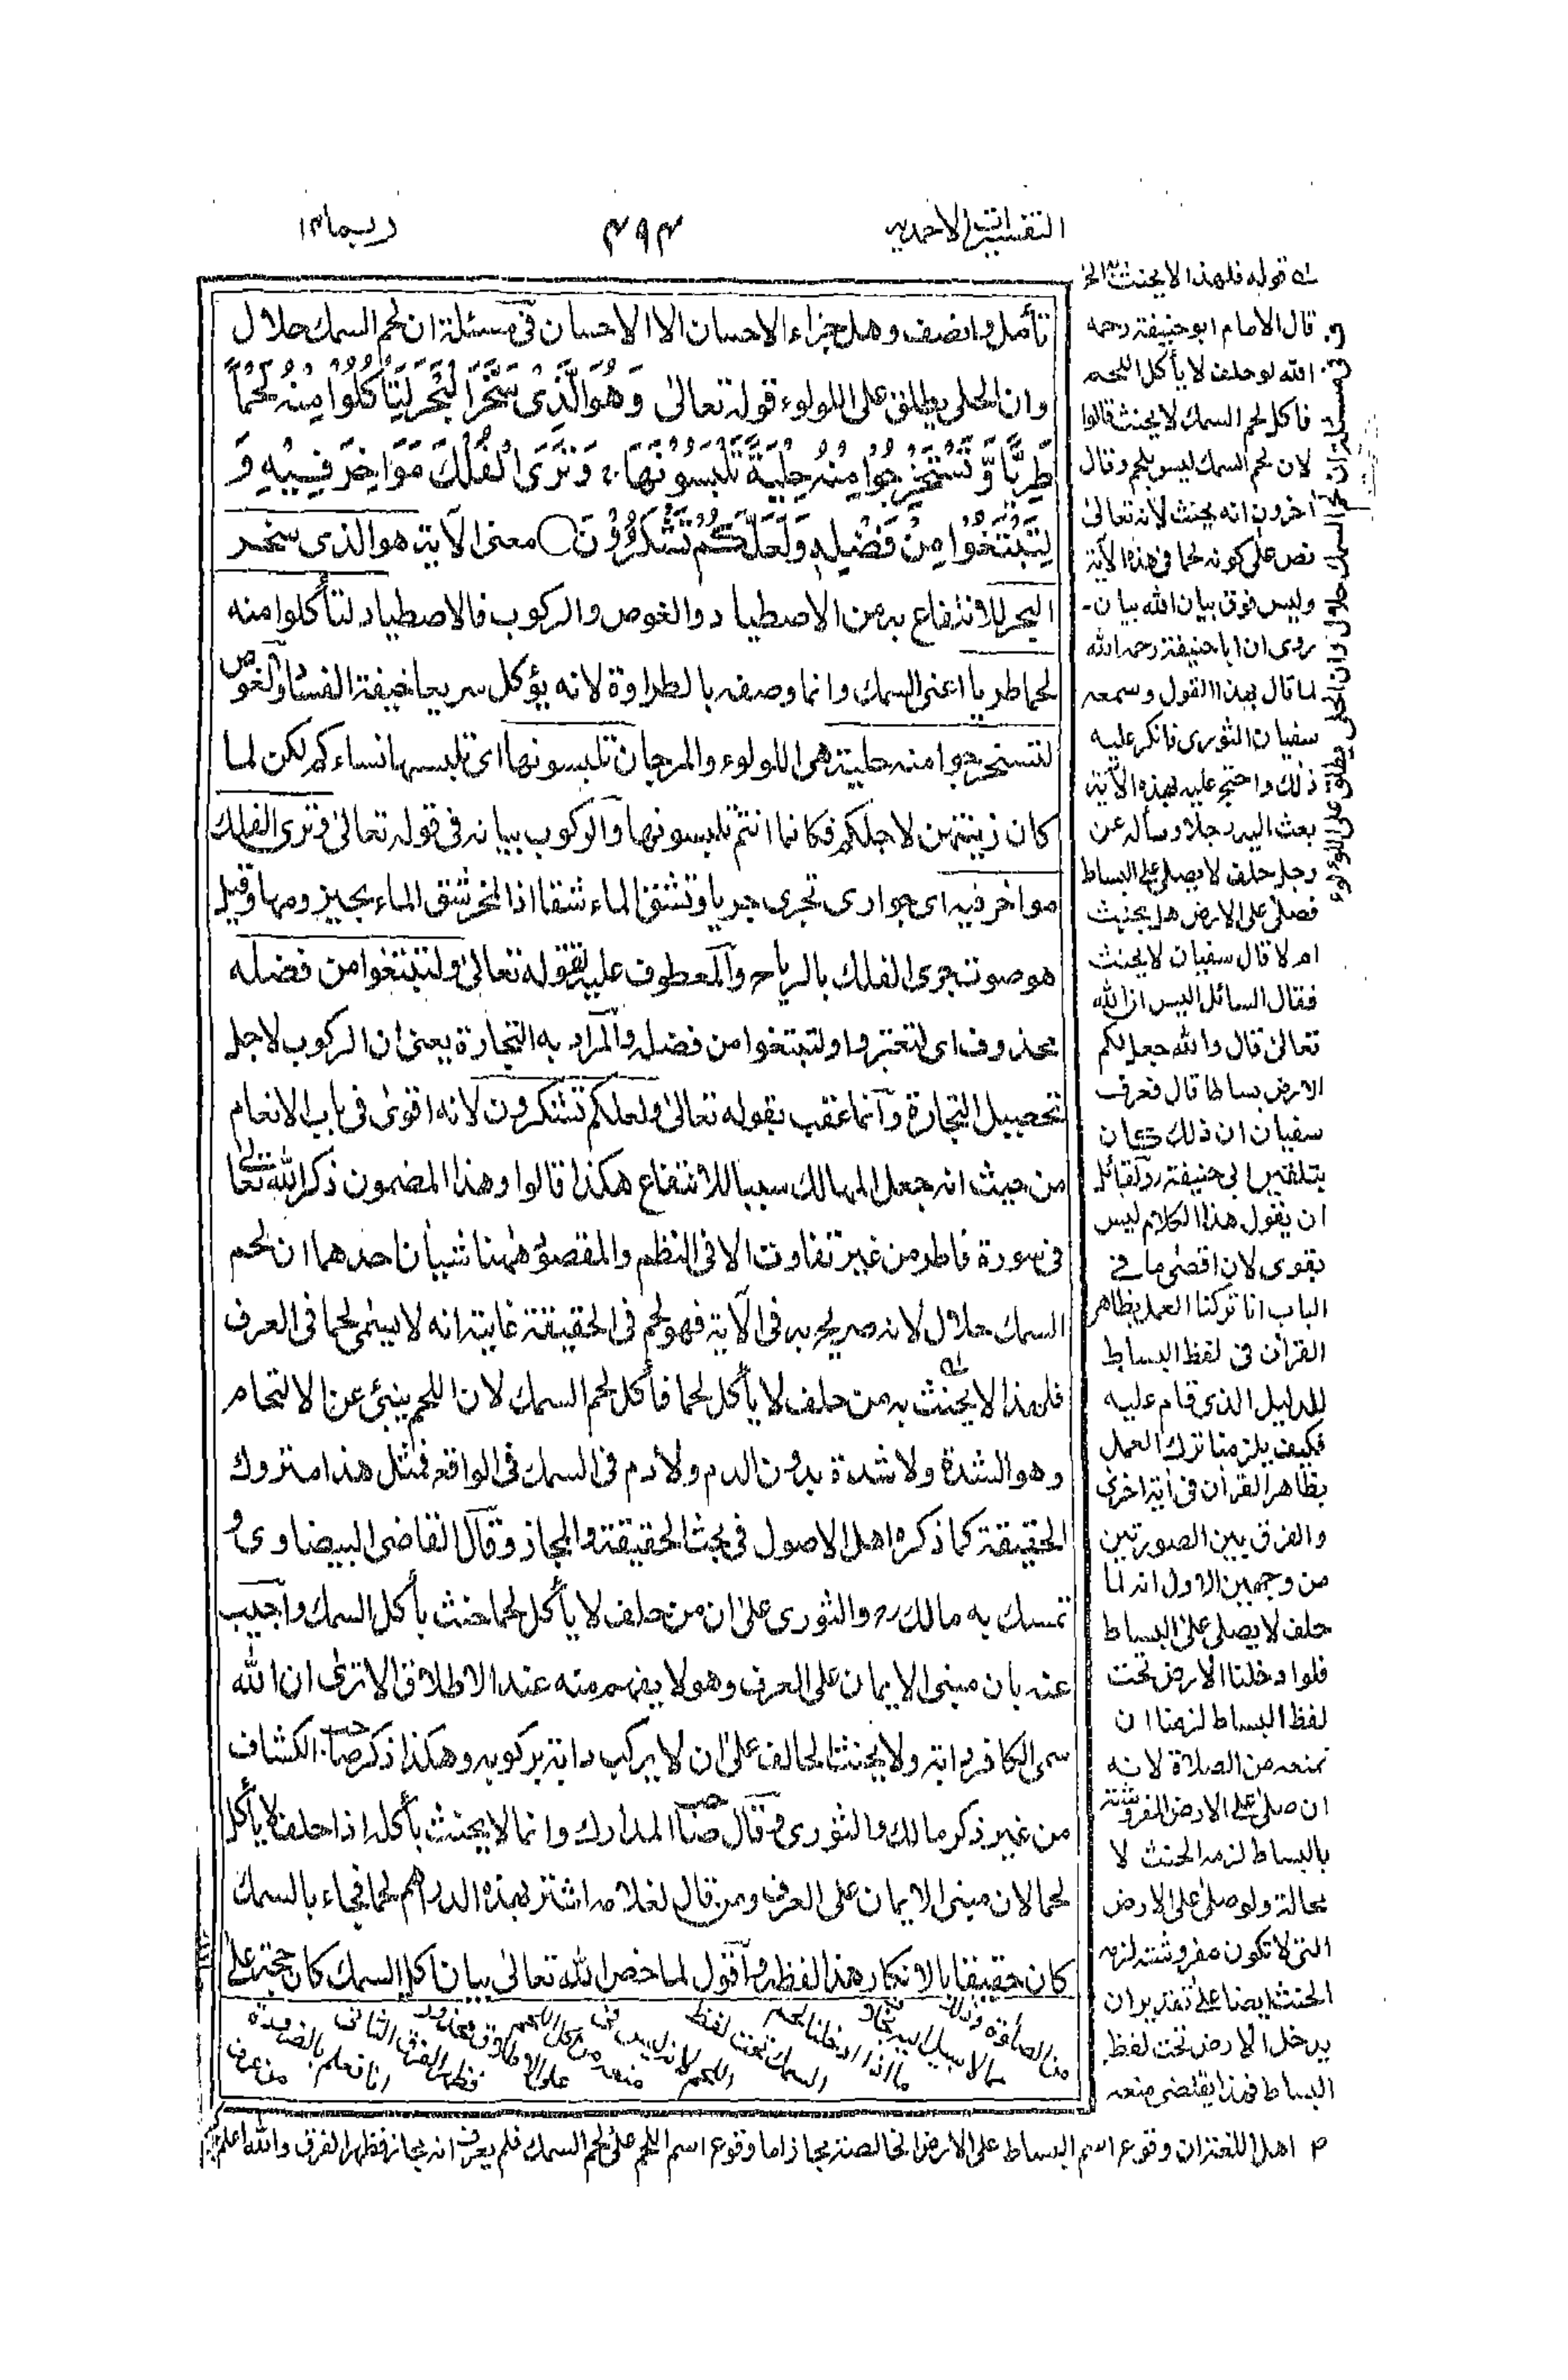 التفسيرات الاحمدية
٤٩٤
ربما ١٤
تأمل وانصف وهل جزاء الاحسان الا الاحسان فى مسئلة ان لحم السمك حلال
وان الحلى يطلق على اللولوء قوله تعالىٰ وَهُوَ الَّذِىْ سَخَّرَ الْبَحْرَ لِتَأْكُلُوْا مِنْهُ لَحْمًا
طَرِيًّا وَّ تَسْتَخْرِجُوْا مِنْهُ حِلْيَةً تَلْبَسُوْنَهَا، وَتَرَى الْفُلْكَ مَوَاخِرَ فِيْهِ وَ
لِتَبْتَغُوْا مِنْ فَضْلِهٖ وَلَعَلَّكُمْ تَشْكُرُوْنَ ○ معنى الآية هو الذى سخر
البحر للانتفاع به من الاصطياد والغوص والركوب فالاصطياد لتأكلوا منه
لحما طريا اعنى السمك وانما وصفه بالطراوة لانه يؤكل سريعا خيفة الفساد والغوص
لتستخرجوا منه حلية هى اللولوء والمرجان تلبسونها اى تلبسها نساءكم لكن لما
كان زينتهن لاجلكم فكانما انتم تلبسونها والركوب بيانه فى قوله تعالىٰ وترى الفلك
مواخر فيه اى جوارى تجرى جريا وتشق الماء شقا اذ المخر شق الماء بحيزومها وقيل
هو صوت جرى الفلك بالرياح والمعطوف عليه لقوله تعالىٰ ولتبتغوا من فضله
محذوف اى لتعتبروا ولتبتغوا من فضله والمراد به التجارة يعنى ان الركوب لاجل
تحصيل التجارة وانما عقب بقوله تعالىٰ ولعلكم تشكرون لانه اقوىٰ فى باب الانعام
من حيث انه جعل المهالك سببا للانتفاع هكذا قالوا وهذا المضمون ذكر الله تعالىٰ
فى سورة فاطر من غير تفاوت الا فى النظم والمقصود ههنا شيأن احدهما ان لحم
السمك حلال لانه صريح به فى الآية فهو لحم فى الحقيقة غايته انه لا يسمى لحما فى العرف
فلهذا لا يحنث به من حلف لا يأكل لحما فأكل لحم السمك لان اللحم ينبئ عن الالتحام
وهو الشدة ولا شدة بدون الدم ولا دم فى السمك فى الواقع فمثل هذا متروك
الحقيقة كما ذكره اهل الاصول فى بحث الحقيقة والمجاز وقال القاضى البيضاوى و
تمسك به مالك رح والثورى علىٰ ان من حلف لا يأكل لحما حنث بأكل السمك واجيب
عنه بان مبنى الايمان على العرف وهو لا يفهم منه عند الاطلاق الا ترىٰ ان الله
سمى الكافر دابة ولا يحنث الحالف علىٰ ان لا يركب دابة بركوبه وهكذا ذكر صاحب الكشاف
من غير ذكر مالك والثورى وقال صاحب المدارك وانما لا يحنث بأكله اذا حلف لا يأكل
لحما لان مبنى الايمان على العرف ومن قال لغلامه اشتر بهذه الدراهم لحما فجاء بالسمك
كان حقيقا بالانكار هذا لفظه واقول لما خص الله تعالىٰ بيان اكل السمك كان حجة علىٰ
له قوله فلهذا لا يحنث الخ
قال الامام ابو حنيفة رحمه
الله لو حلف لا يأكل اللحم
فاكل لحم السمك لا يحنث قالوا
لان لحم السمك ليس بلحم وقال
آخرون انه يحنث لانه تعالىٰ
نص علىٰ كونه لحما فى هذه الآية
وليس فوق بيان الله بيان-
روى ان ابا حنيفة رحمه الله
لما قال بهذا القول وسمعه
سفيان الثورى فانكر عليه
ذلك واحتج عليه بهذه الآية
بعث اليه رجلا وسأله عن
رجل حلف لا يصلى على البساط
فصلىٰ على الارض هل يحنث
ام لا قال سفيان لا يحنث
فقال السائل اليس ان الله
تعالىٰ قال والله جعل لكم
الارض بساطا قال فعرف
سفيان ان ذلك كان
بتلقين ابى حنيفة رح ولقائل
ان يقول هذا الكلام ليس
بقوى لان اقصىٰ ما فى
الباب انا تركنا العمل بظاهر
القرآن فى لفظ البساط
للدليل الذى قام عليه
فكيف يلزمنا ترك العمل
بظاهر القرآن فى آية اخرىٰ
والفرق بين الصورتين
من وجهين الاول انه لما
حلف لا يصلى على البساط
فلو ادخلنا الارض تحت
لفظ البساط لزمنا ان
نمنعه من الصلاة لانه
ان صلىٰ على الارض المفروشة
بالبساط لزمه الحنث لا
محالة ولو صلىٰ على الارض
التى لا تكون مفروشة لزمه
الحنث ايضا علىٰ تقدير ان
يدخل الارض تحت لفظ
البساط فهذا يقتضى منعه
من الصلوٰة وذلك
مما لا سبيل اليه بخلاف
ما اذا ادخلنا لحم
السمك تحت لفظ
اللحم لانه ليس فى
منعه من اكل اللحم
على الاطلاق محذور
فظهر الفرق الثانى
انا نعلم بالضرورة
من عرف
٣ اهل اللغة ان وقوع اسم البساط على الارض الخالصة مجاز اما وقوع اسم اللحم علىٰ لحم السمك فلم يعرف انه مجاز فظهر الفرق والله اعلم
فى مسئلة ان لحم السمك حلال وان الحلى يطلق على اللؤلوء